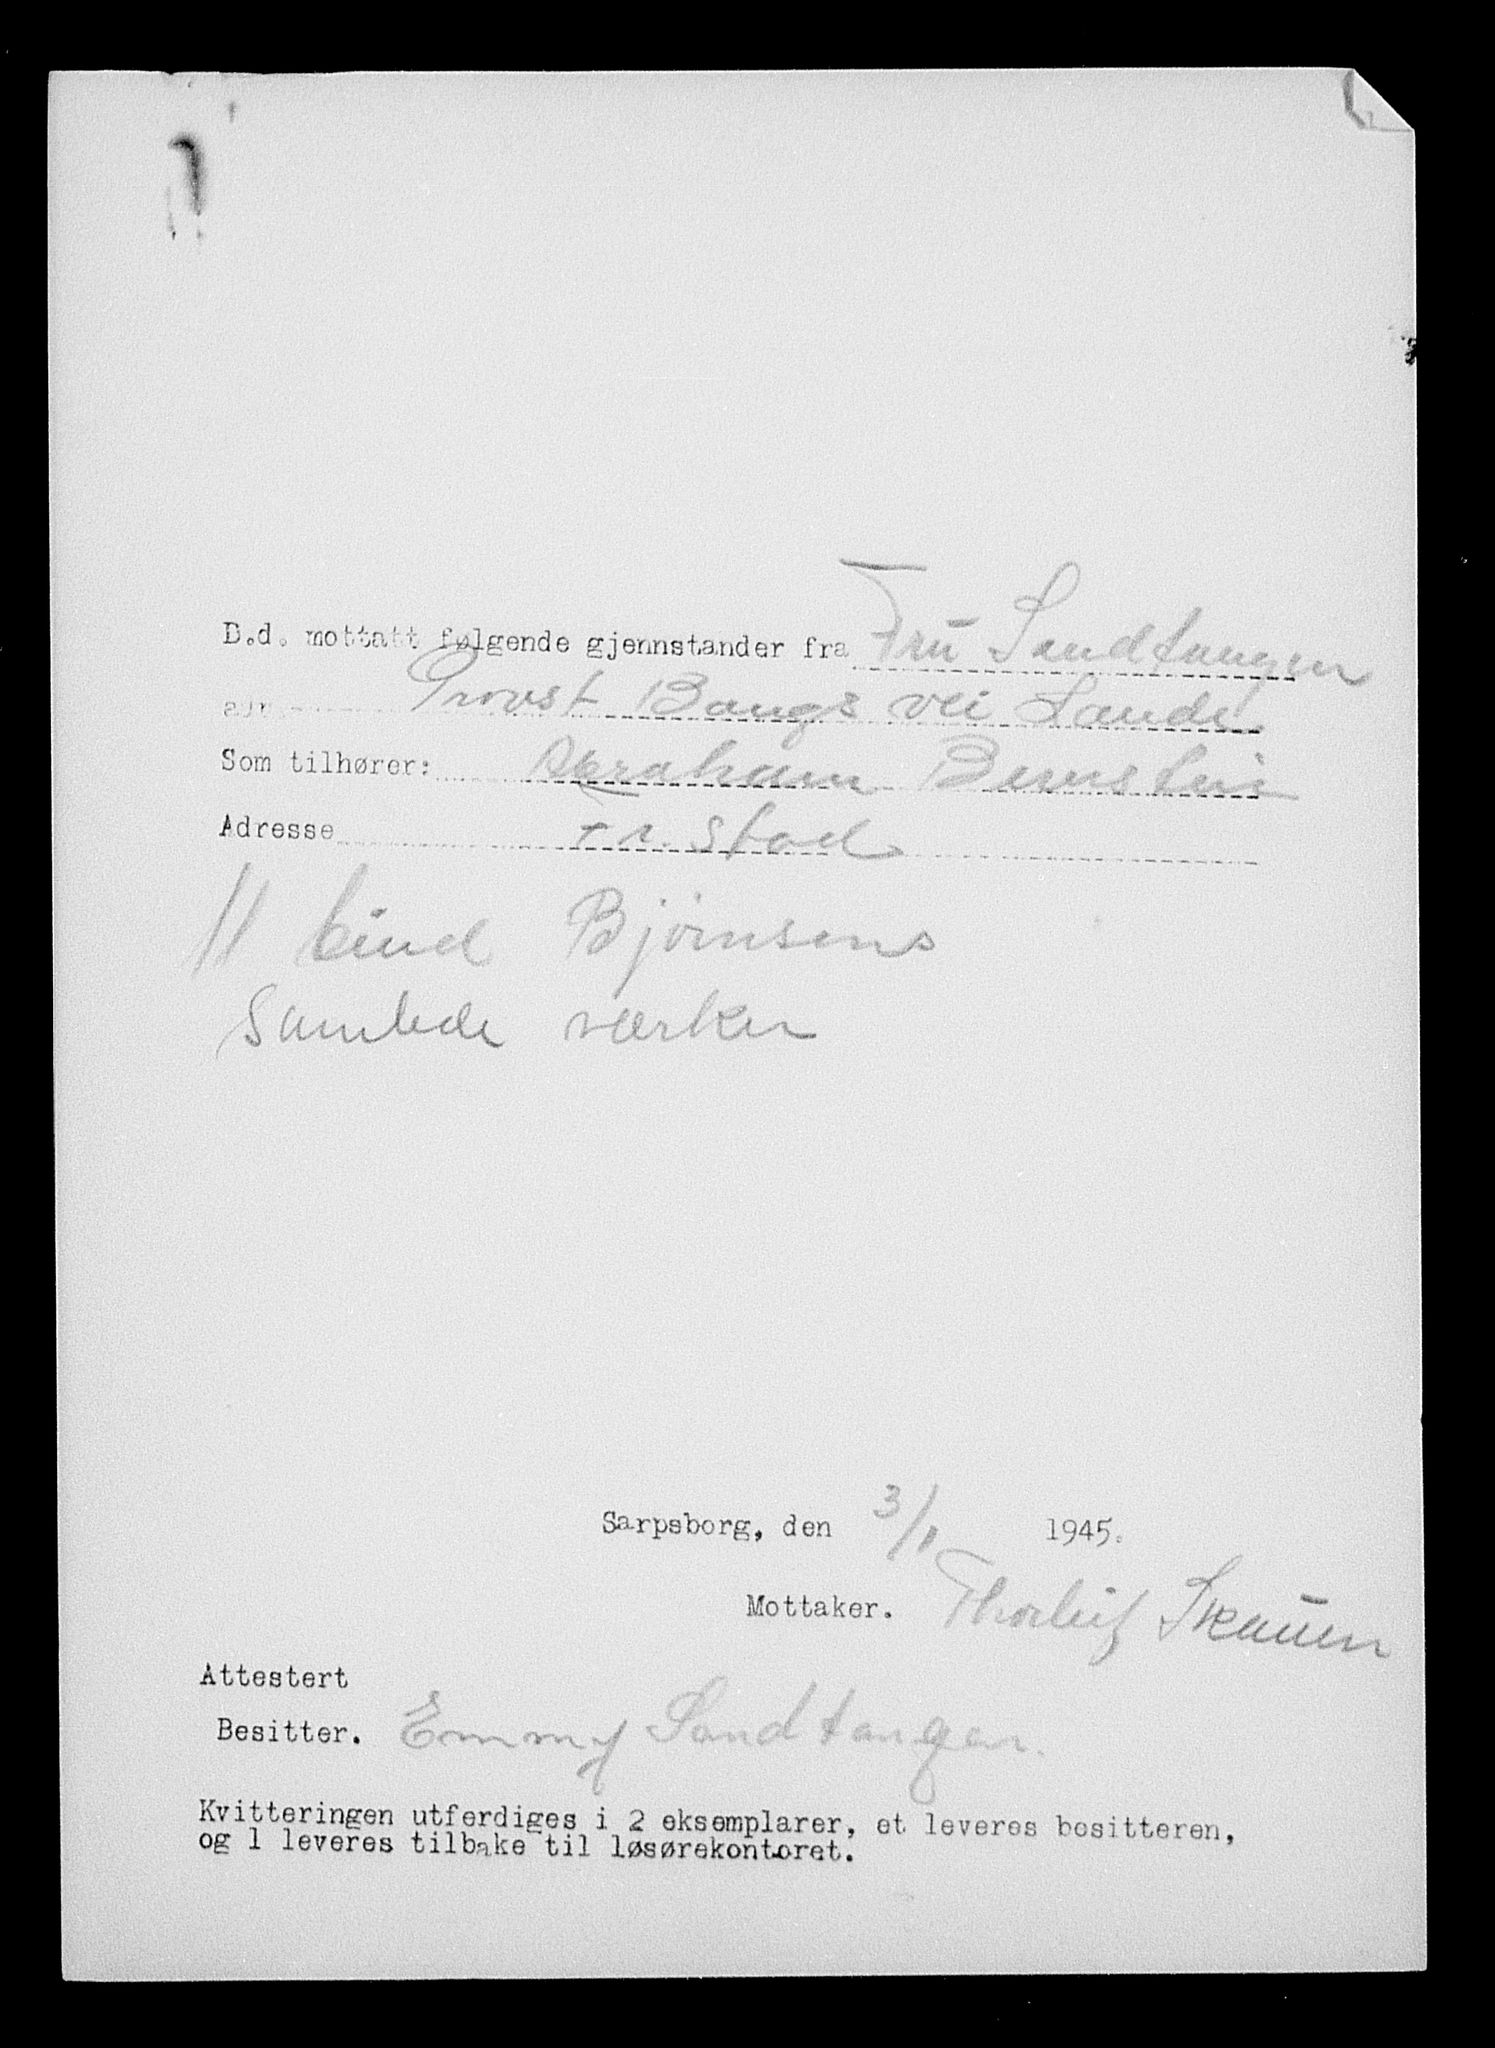 D.d. mottatt følgende gjennstander fra Fru Sandtangen
adr. Provst Bangs vei Lande.
Som tilhører: Abraham Bernstein
Adresse Fr. stad
11 bind Bjørnsens
Samlede værker
Sarpsborg, den 3/11 1945.
Mottaker. Thorleif Skauen
Attestert
Besitter. Emmy Sandtangen.
Kvitteringen utferdiges i 2 eksemplarer, et leveres besitteren,
og 1 leveres tilbake til løsørekontoret.